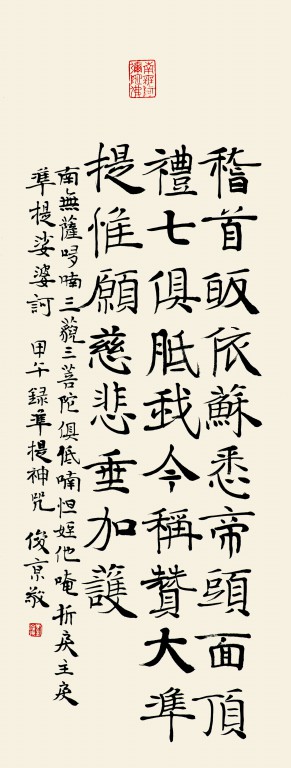 稽首皈依蘇悉帝頭面頂
禮七俱胝我今稱贊大準
提惟願慈悲垂加護
南無薩哆喃三藐三菩陀俱低喃怛姪他唵折戾主戾
準提娑婆訶 甲午錄準提神咒 俊京敬